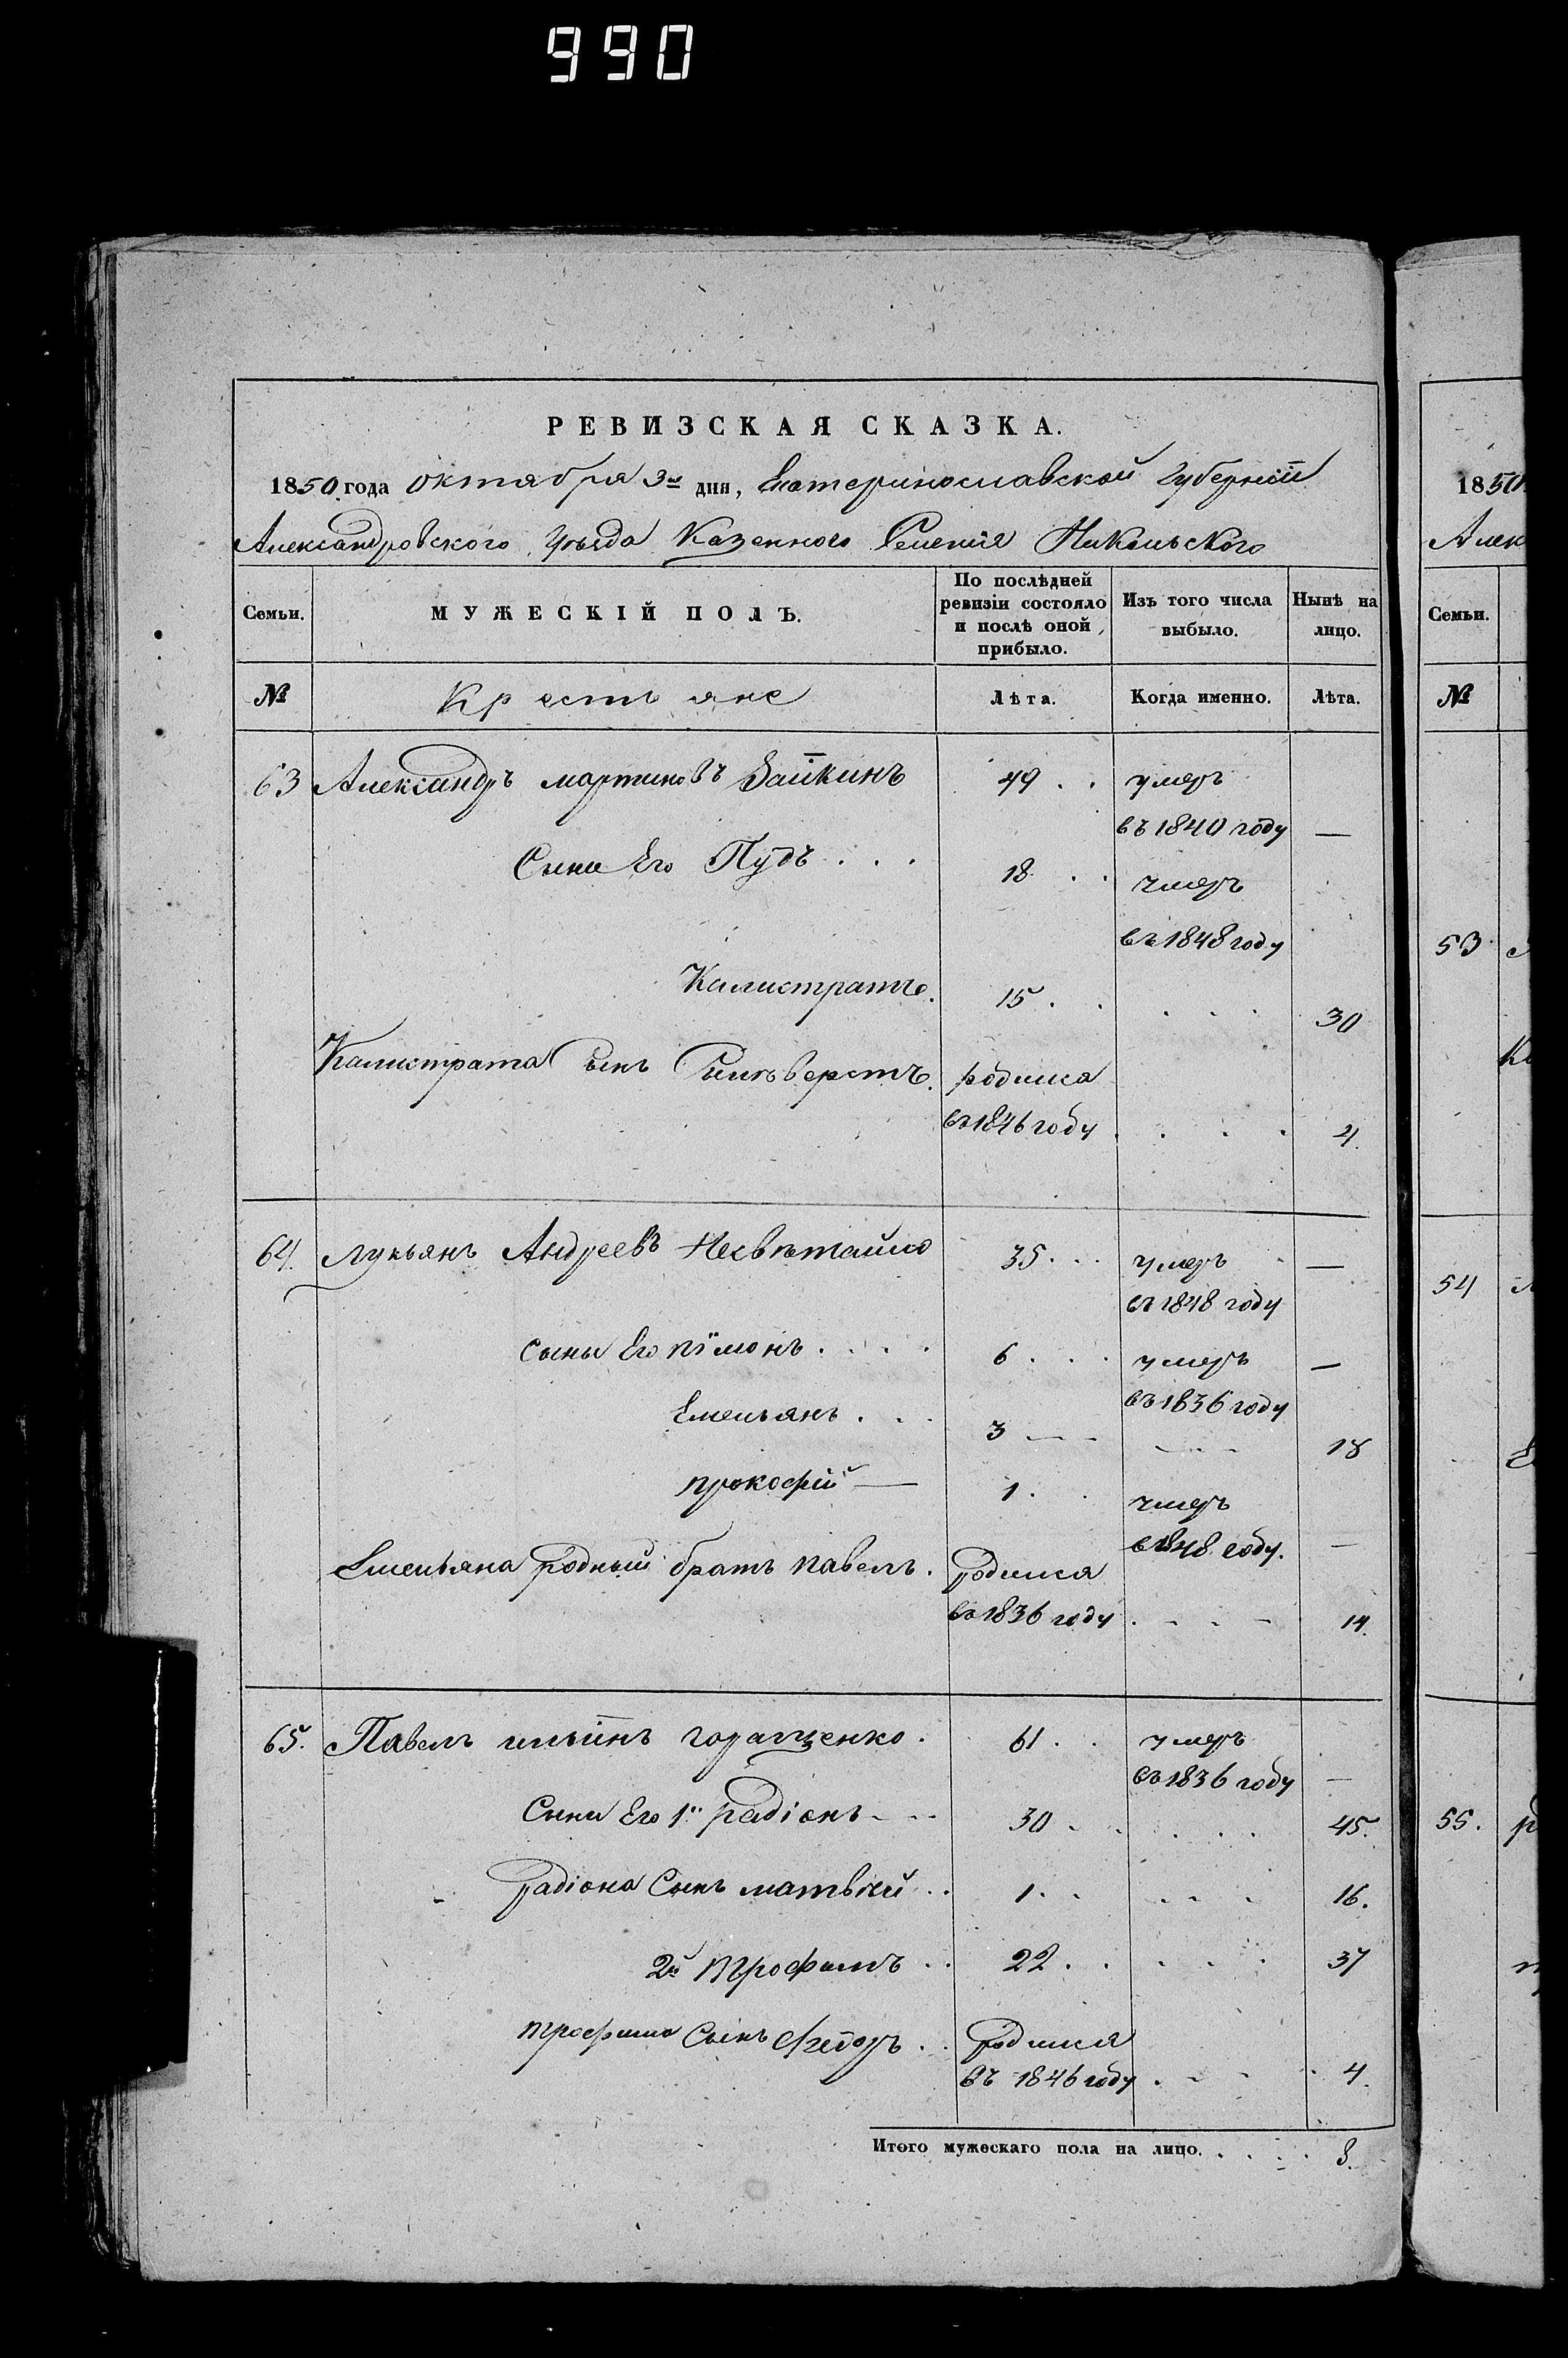 990
РЕВИЗСКАЯ СКАЗКА.
1850 года октября 3го дня, Екатеринославской Губерніи
Александровского Уѣзда Казенного Селенія Никольского
Семьи. МУЖЕСКІЙ ПОЛЪ. По послѣдней ревизіи состояло и послѣ оной прибыло. Изъ того числа выбыло. Нынѣ на лицо.
№ Крестьяне Лѣта. Когда именно. Лѣта.
63 Александръ мартиновъ Зайкинъ 49 . . умеръ
въ 1840 году —
Сыни Его Пудъ . . . 18 . . умеръ
въ 1848 году
Калистратъ. 15 . . . . . 30
Калистрата Сынъ Сильверстъ. родился
въ 1846 году . . . . 4.
64. Лукьянъ Андреевъ Несвѣтайло 35 . . . умеръ —
въ 1848 году
сыны Его пімонъ . . . . 6 . . . умеръ —
въ 1836 году
Емельянъ . . . 3 — - - - - 18
прокофій — 1 . . умеръ
в 1848 году. —
Емельяна родный братъ павелъ. родился
въ 1836 году . - - - 14.
65. Павелъ ильинъ горащенко . 61 . . умеръ
въ 1836 году —
Сыни Его 1й радіонъ - - - 30 . . . . . 45.
радіона Сынъ матвѣй . . 1 . . . . . 16.
2й трофимъ . . 22 . . . . . . 37
трофима Сынъ Федоръ . . родился
въ 1846 году . - - . 4.
Итого мужескаго пола на лицо. . . . . 8.
1850
Алек
Семьи.
№
53
54
55.